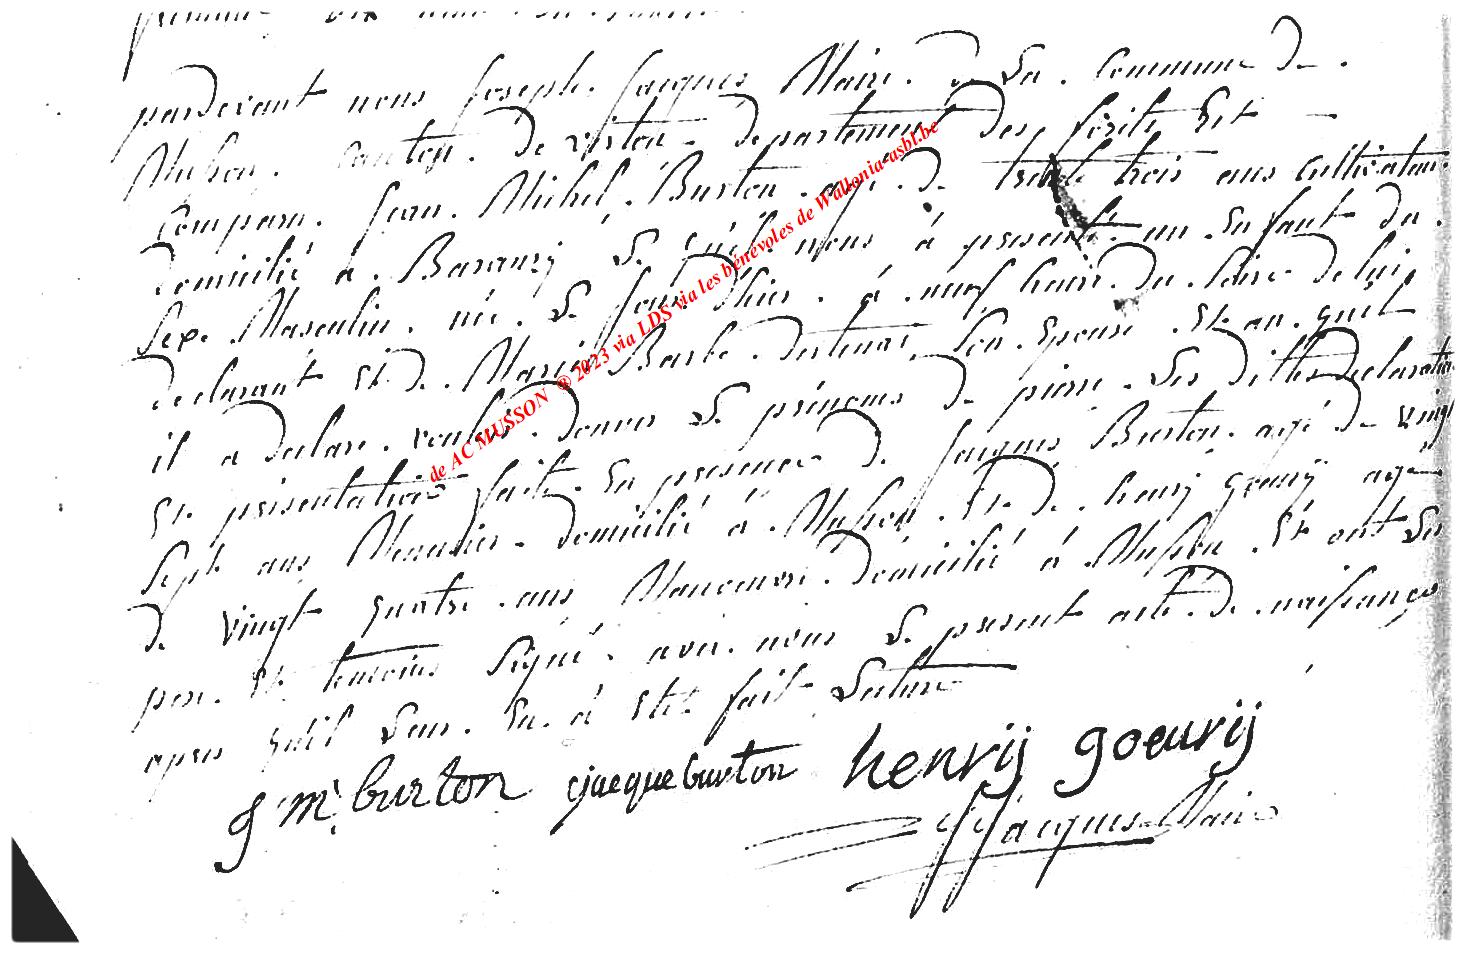 pardevant nous Joseph. Jacques Maire. de La. Commune De.
Musson. Canton. De virton - departement Des foriets Est -
Comparu. Jean. Michel. Burton. agé. de trente trois ans Cultivateur
domicilié a. Baranzy Le quel nous á presenté un Enfant du.
Sexe Masculin. née. Le jour D'hier. á neuf heure Du Soire De lui
declarant Et De. Marie Barbe. Son Epouse Et au. quel
il a declare. vouloir. donner Le prénoms De pierre - Les dittes declaration
Et presentation faite En presence De Jacques Burton. agé De vingt
Sept ans Menusier - domicilié á Musson. Et De henry goeury agé
de vingt quatre ans domicilié á Musson. Et ont Les
pere. Et temoins Signé. avec. nous Le present acte. De naissance
apres quil Leur. En á Eté fait Lecture
g m burton cjacque burton henrij goeurij
JJacques Maire
de AC MUSSON ® 2023 via LDS via les bénévoles de Wallonia-asbl.be